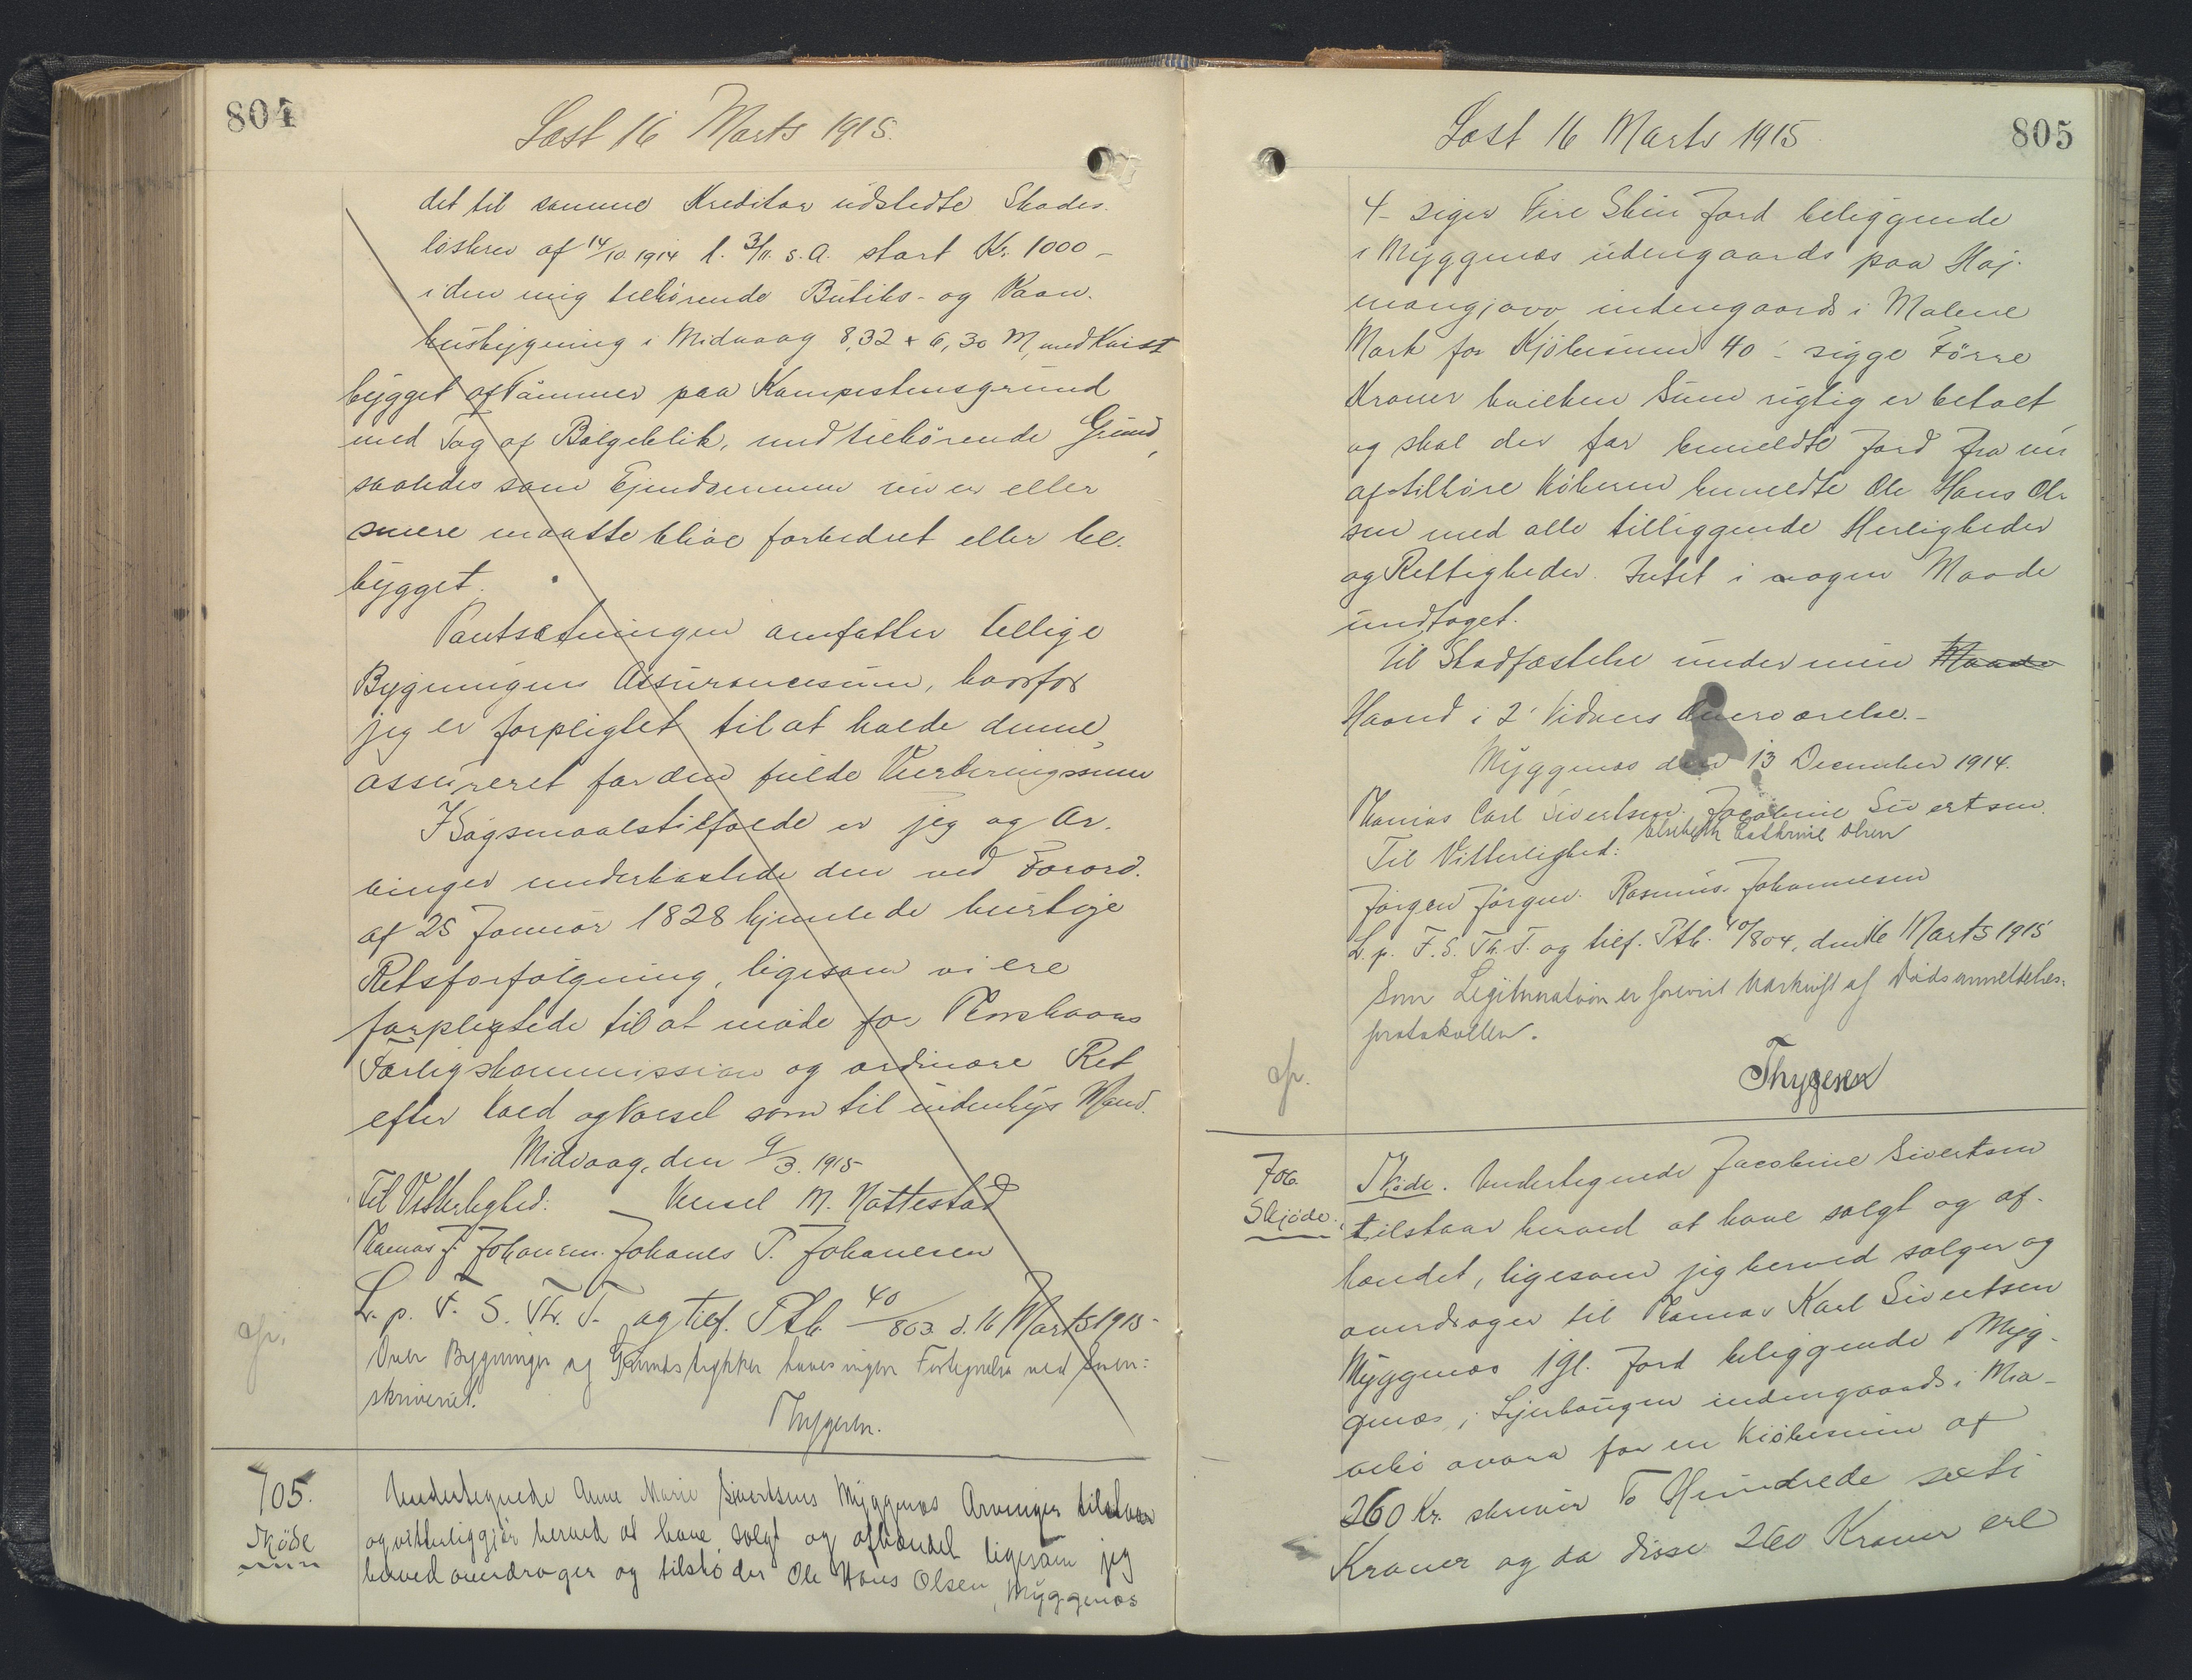 804
Læst 16 Marts 1915.
det til samme Kreditor udstedte Skades-
løsbrev af 14/10 1914 l. 3/11 s.A. stort Kr. 1000 –
i den mig tilhørende Butiks- og Vaan-
husbygning i Midvaag 8,32 x 6,30 M, med Kvist
bygget af Tømmer paa Kampestensgrund
med Tag af Bølgeblik, med tilhørende Grund,
saaledes som Ejendommen nu er eller
senere maatte blive forbedret eller be-
bygget.
Pantsætningen omfatter tillige
Bygningens Assurancesum, hvorfor
jeg er forpligtet til at holde denne
assureret for den fulde Vurderingssum
I Søgsmaalstilfælde er jeg og Ar-
vinger underkastede den ved Forord.
af 25 Januar 1828 hjemlede hurtige
Retsforfølgning, ligesom vi ere
forpligtede til at møde for Thorshavns
Forligskommission og ordinære Ret
efter Kald og Varsel som til indenbys Mænd.
Midvaag, den 9/3. 1915
Til Vitterlighed: M. Nattestad
Thomas J. Johansen. Johanes P. Johanesen
L. p. F. S. Th. T. og tilf. Ptb. 40/803 d. 16 Marts 1915 -
Over Bygninger og Grundstykker haves ingen Fortegnelse ved Soren-
skriveriet.
Thygesen.
cfr.
705.
Skøde
Undertegnede Anne Marie Sivertsens Myggenæs Arvinger tilstaar
og vitterliggjør herved at have solgt og afhændet ligesom jeg
herved overdrager og tilskøder Ole Hans Olsen, Myggenæs
Læst 16 Marts 1915.
805
4- siger Fire Skin Jord beliggende
i Myggenæs udengaards paa Høj-
indengaards i Malene
Mark for Kjøbesum 40 - sigge Førre
Kroner hvilken Sum rigtig er betalt
og skal der for bemeldte Jord fra nu
af tilhøre Køberen bemeldte Ole Hans Ol-
sen med alle tilliggende Herligheder
og Rettigheder. Intet i nogen Maade
undtaget.
Til Stadfæstelse under min Maade
Haand i 2' Vidners Overværelse. -
Myggenæs den 13 December 1914.
Thomas Carl Sivertsen. Jacobine Sivertsen.
Elsebeth Cathrine Olsen
Til Vitterlighed:
Jørgen Jørgen. Rasmus Johannesen
L. p. F. S. Th. T. og tilf. Ptb. 40/804, den 16 Marts 1915
Som Legitimation er forevist Udskrift af Dødsanmeldelses-
protokollen.
cfr.
Thygesen
706.
Skjøde.
Skøde. Undertegnede Jacobine Sivertsen
tilstaar herved at have solgt og af-
hændet, ligesom jeg herved sælger og
overdrager til Thomas Karl Sivertsen
Myggenæs 1 Gl. Jord beliggende i Myg-
genæs, i indengaards i Mia-
for en Kjøbesum af
260 Kr. skriver To Hundrede sexti
Kroner og da disse 260 Kroner ere